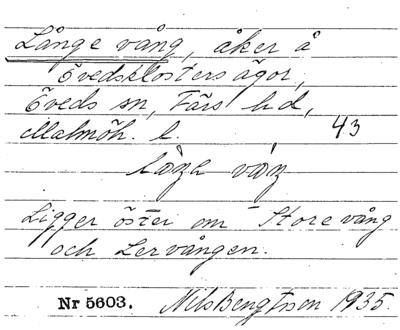 Långe vång, åker å
Övedsklosters ägor,
Öveds sn, Färs hd,
Malmöh. l. 43
vång
Ligger öster om Store vång
och Lervången.
Nr 5603. Nils Bengtsson 1935.